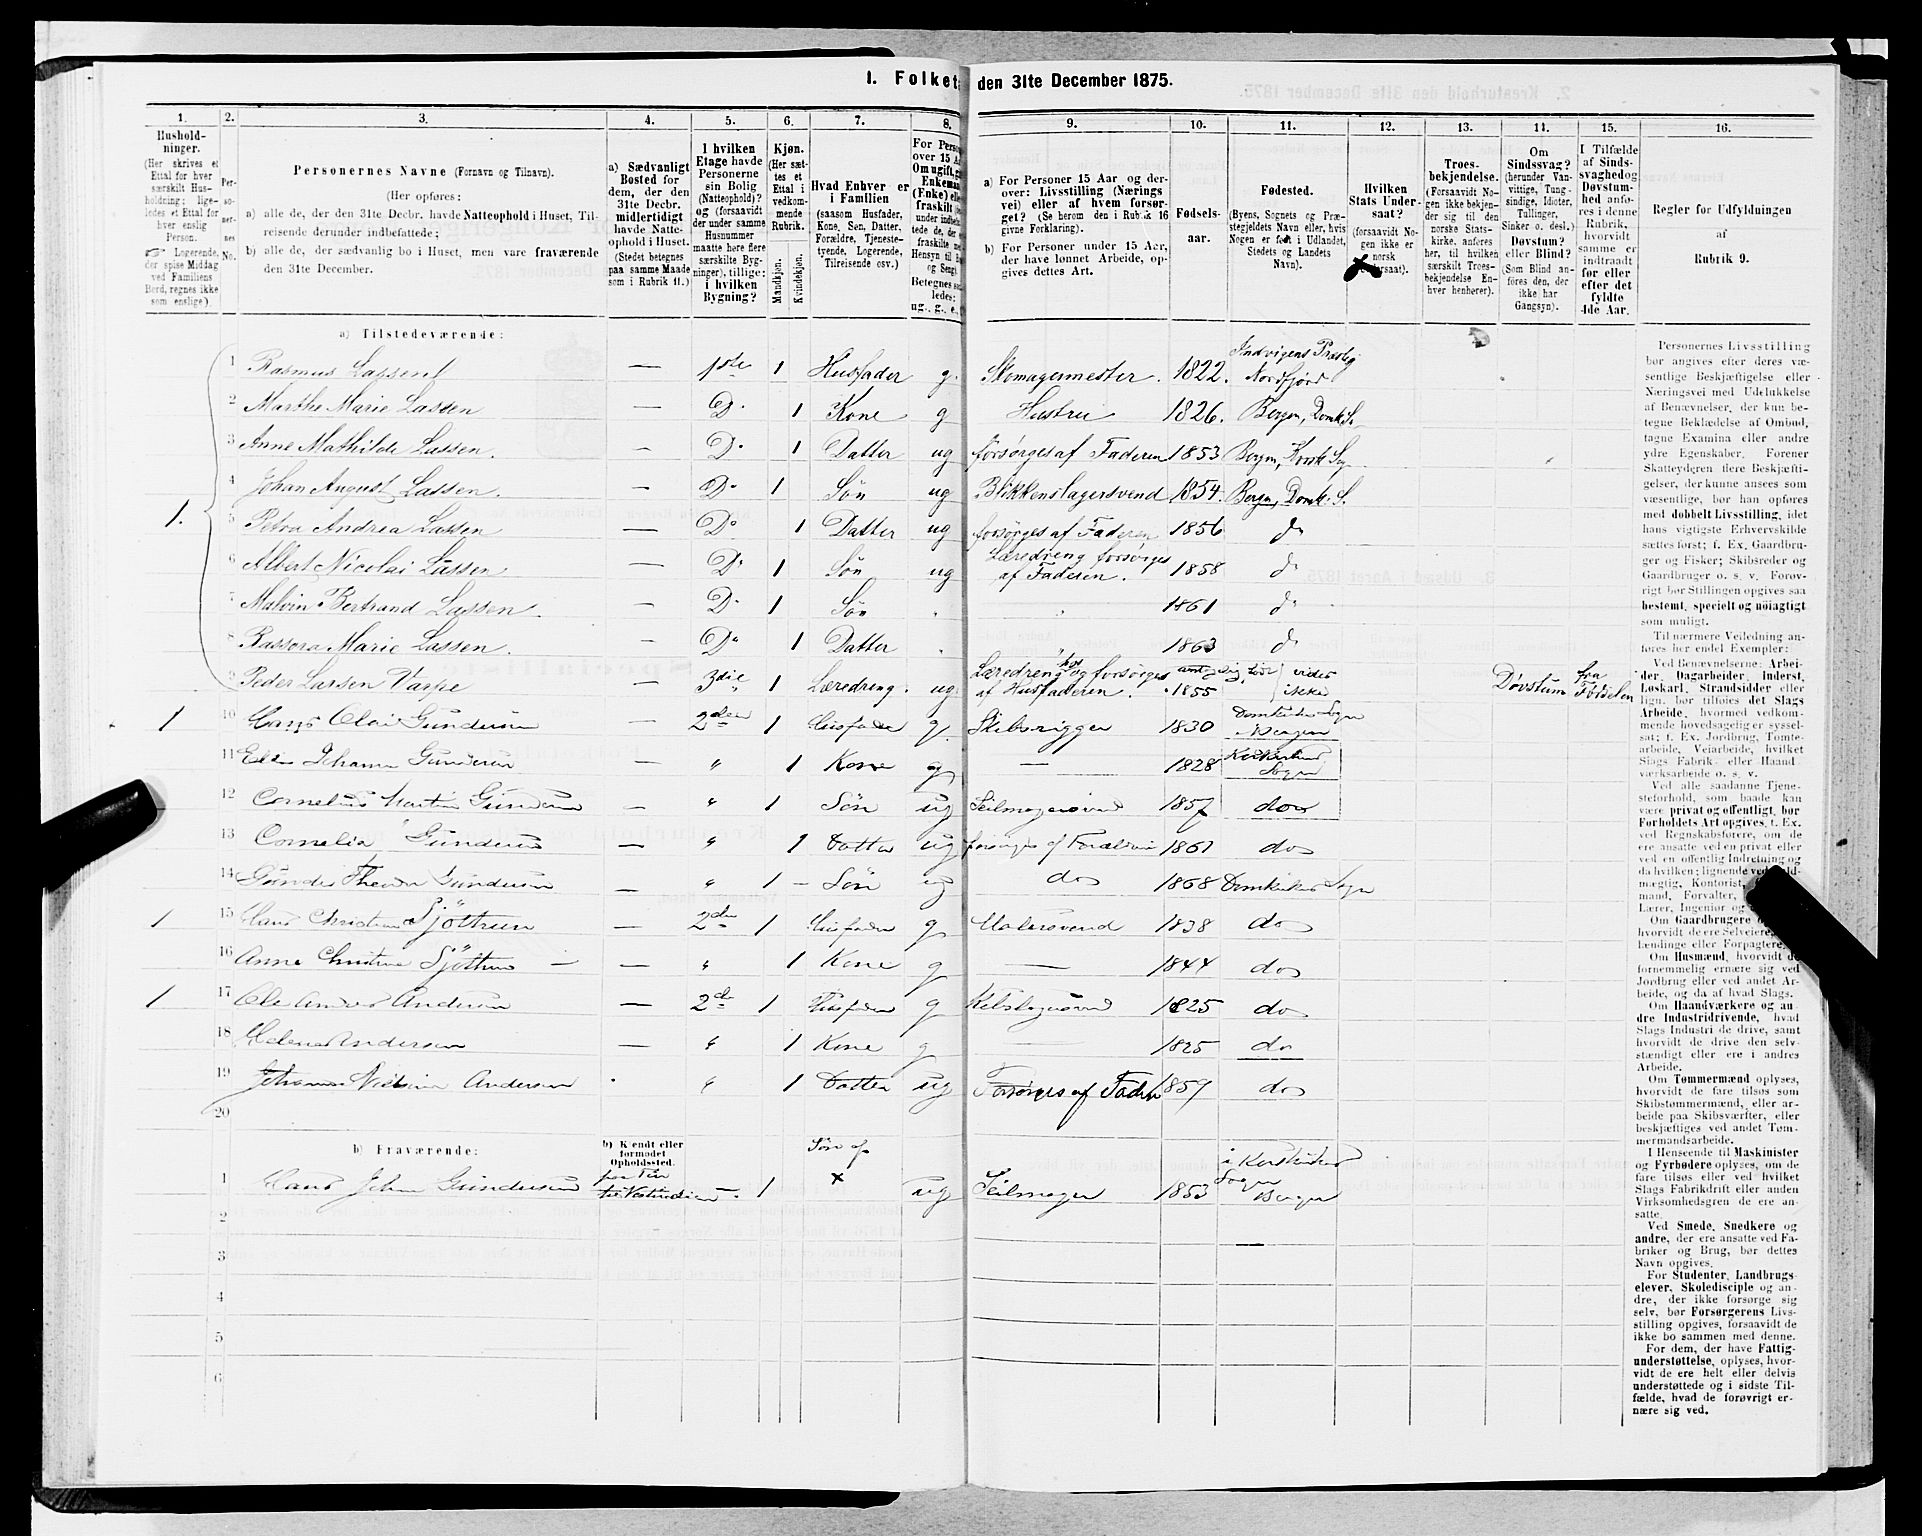 1. Folket
den 31te December 1875.
1. 2. 3. 4. 5. 6. 7. 8. 9. 10. 11. 12. 13. 14. 15. 16.
Hushold-
ninger.
(Her skrives et
Ettal for hver
særskilt Hus-
holdning; lige-
ledes et Ettal for
hver enslig
Person.
☞ Logerende,
der spise Middag
ved Familiens
Bord, regnes ikke
som enslige).
Per-
so-
ner-
nes
No.
Personernes Navne (Fornavn og Tilnavn).
(Her opføres:
a) alle de, der den 31te Decbr. havde Natteophold i Huset, Til-
reisende derunder indbefattede;
b) alle de, der sædvanlig bo i Huset, men vare fraværende
den 31te December.
a) Sædvanligt
Bosted for
dem, der den
31te Decbr.
midlertidigt
havde Natte-
ophold i Huset.
(Stedet betegnes
paa samme Maade
som i Rubrik 11.)
I hvilken
Etage havde
Personerne
sin Bolig
(Natteophold)?
og (forsaavidt
der under samme
Husnummer
maatte høre flere
særskilte Byg-
ninger), tillige:
i hvilken
Bygning?
Kjøn.
(Her sæt-
tes et
Ettal i
vedkom-
mende
Rubrik.
Mandkjøn.
Kvindekjøn.
Hvad Enhver er
i Familien
(saasom Husfader,
Kone, Søn, Datter,
Forældre, Tjeneste-
tyende, Logerende,
Tilreisende osv.)
For Perso
over 15 Aa
Om ugift, g
Enkeman
(Enke) elle
fraskilt
Betegnes sa
ledes:
ug., g., e.,
a) For Personer 15 Aar og der-
over: Livsstilling (Nærings
vei) eller af hvem forsør-
get? (Se herom den i Rubrik 16
givne Forklaring).
b) For Personer under 15 Aar,
der have lønnet Arbeide, op-
gives dettes Art.
Fødsels-
aar.
Fødested.
(Byens, Sognets og Præ-
stegjeldets Navn eller, hvis
Nogen er født i Udlandet,
Stedets og Landets
Navn).
Hvilken
Stats Under-
saat?
(forsaavidt No-
gen ikke er
norsk
Undersaat).
Troes-
bekjendelse.
(Forsaavidt No-
gen ikke bekjen-
der sig til den
norske Stats-
kirke, anføres
her, til hvilken
særskilt Troes-
bekjendelse En-
hver henhører).
Om
Sindssvag?
(herunder Van-
vittige, Tung-
sindige, Idioter,
Tullinger,
Sinker o. desl.)
Døvstum?
eller Blind?
(Som Blind an-
føres den, der
ikke har
Gangsyn).
I Tilfælde
af Sinds-
svaghed,
Døvstum-
hed anfø-
res i denne
Rubrik,
hvorvidt
samme er
indtraadt
før eller
efter det
fyldte
4de Aar.
Regler for Udfyldningen
af
Rubrik 9.
a) Tilstedeværende:
1 Rasmus Lassen — 1ste 1 Husfader g. Skomagermester. 1822. Indvigens Præsteg Nordfjord
2 Marthe Marie Lassen — Do 1 Kone g Hustru 1826. Bergen, Domk. S.
3 Anne Mathilde Lassen. — Do 1 Datter ug forsørges af Faderen 1853 Bergen, Korsk. Sog
1. 4 Johan August Lassen. — Do 1 Søn ug Blikkenslagersvend 1854. Bergen, Domk. S.
5 Petra Andrea Lassen — Do 1 Datter ug forsørges af Faderen 1856 do
6 Albert Nicolai Lassen. — Do 1 Søn ug Læredreng forsørges af Faderen. 1858 do
7 Malvin Bertrand Lassen — Do 1 Søn " " 1861 do
8 Rassora Marie Lassen. — Do 1 Datter " 1863 do
9 Peder Larsen Varpe — 3die 1 Læredreng. ug. Læredreng hos og forsørges af Husfaderen. 1855 vides ikke Døvstum fra Fødselen
1 10 Hans Olai Gundersen — 2den 1 Husfader g. Skibsrigger 1830 Domkirke Sogn Bergen
11 Johanne Gundersen — " 1 Kone g — 1828 Korskirkens Sogn
12 Cornelius Martin Gundersen — " 1 Søn ug Seilmagersvend 1857 do
13 Cornelia Gundersen — " 1 Datter ug forsørges af Forældrene 1861 do
14 Theodor Gundersen — " 1 — Søn ug do 1868 Domkirkens Sogn
1 15 Hans Christian Sjöttrun — 2den 1 Husfader g Malersvend 1838 do
16 Anne Christine Sjöttrun — — " 1 Kone g — 1844 do
1 17 Ole Andersen — 2den 1 Husfader g 1825 do
18 Helene Andersen — " 1 Kone g — 1825 do
19 Johanne Andersen " 1 Datter ug Forsørges af Fader 1859 do
20
b) Fraværende:
b) Kjendt eller
formodet
Opholdssted.
1 Hans Johan Gundersen til Vestindien 1 Søn af × ug Seilmager 1853 i Korskirkes Sogn Bergen
2
3
4
5
6
Personernes Livsstilling
bør angives efter deres væ-
sentlige Beskjæftigelse eller
Næringsvei med Udelukkelse
af Benævnelser, der kun be-
tegne Beklædelse af Ombud,
tagne Examina eller andre
ydre Egenskaber. Forener
Skatteyderen flere Beskjæfti-
gelser, der kunne ansees som
væsentlige, bør han opføres
med dobbelt Livsstilling, idet
hans vigtigste Erhvervskilde
sættes først; f. Ex. Gaardbru-
ger og Fisker; Skibsreder og
Gaardbruger o. s. v. Forøv-
rigt bør Stillingen opgives saa
bestemt, specielt og nöiagtigt
som muligt.
Til nærmere Veiledning an-
føres her endel Exempler:
Ved Benævnelserne: Arbei-
der, Dagarbeider, Inderst,
Løskarl, Strandsidder eller
lign. bør tilføies det Slags
Arbeide, hvormed vedkom-
mende hovedsagelig er syssel-
sat; f. Ex. Jordbrug, Tomte-
arbeide, Veiarbeide, hvilket
Slags Fabrik- eller Haand-
værksarbeide o. s. v.
Ved alle saadanne Tjene-
steforhold, som baade kan
være privat og offentligt, bør
Forholdets Art opgives, f. Ex.
ved Regnskabsførere, om de
ere ansatte ved en privat eller
ved en offentlig Indretning og
da hvilken; lignende ved
mægtig, Kontorist,
mand, Forvalter,
Lærer, Ingeniør og
Om Gaardbrugere
hvorvidt de ere Selveiere,
lændinge eller Forpagtere.
Om Husmænd, hvorvidt de
fornemmelig ernære sig ved
Jordbrug eller ved andet Ar-
beide, og da af hvad Slags.
Om Haandværkere og an-
dre Industridrivende, hvad
Slags Industri de drive, samt
hvorvidt de drive den selv-
stændigt eller ere i andres
Arbeide.
Om Tømmermænd oplyses,
hvorvidt de fare tilsøs som
Skibstømmermænd, eller ar-
beide paa Skibsværfter, eller
beskjæftiges ved andet Tøm-
mermandsarbeide.
I Henseende til Maskinister
og Fyrbødere oplyses, om de
fare tilsøs eller ved hvilket
Slags Fabrikdrift eller anden
Virksomhedsgren de ere an-
satte.
Ved Smede, Snedkere og
andre, der ere ansatte ved Fa-
briker og Brug, bør dettes
Navn opgives.
For Studenter, Landbrugs-
elever, Skoledisciple og an-
dre, der ikke forsørge sig
selv, bør Forsørgerens Livs-
stilling opgives, forsaavidt de
ikke bo sammen med denne.
For dem, der have Fattig-
understøttelse, oplyses, hvor-
vidt de ere helt eller delvis
understøttede og i sidste Til-
fælde, hvad de forøvrigt er-
nære sig ved.